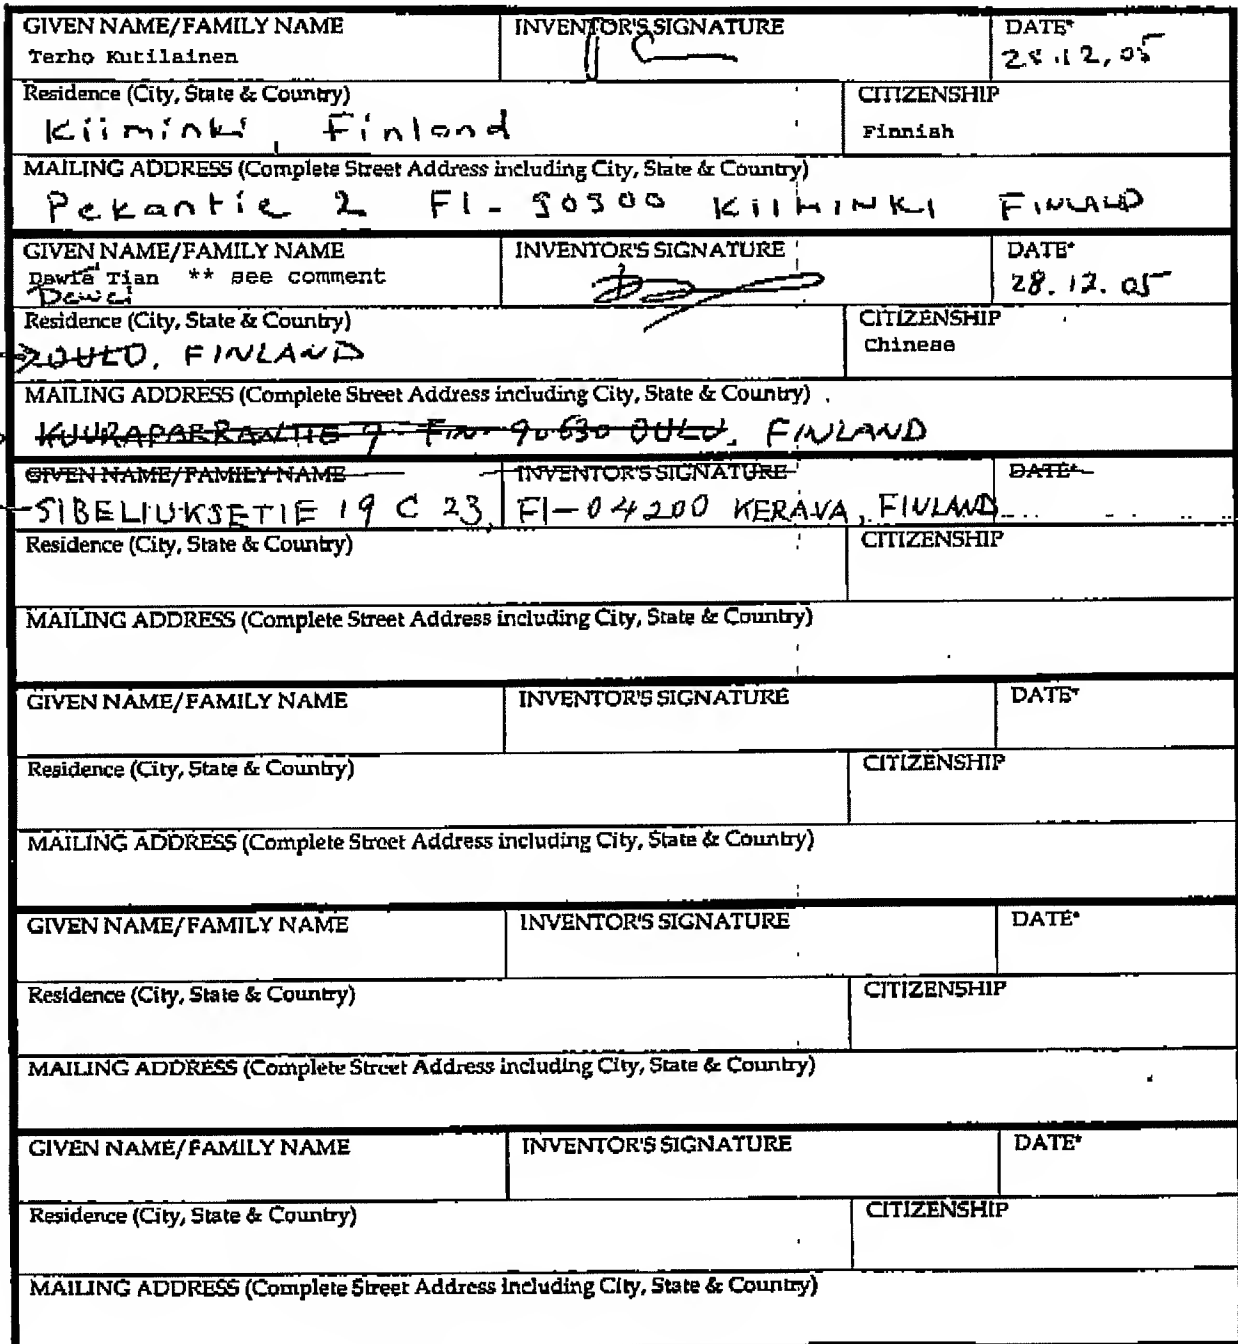 GIVEN NAME/FAMILY NAME INVENTOR'S SIGNATURE DATE*
Terho Kutilainen 28.12.05
Residence (City, State & Country) CITIZENSHIP
Kiiminki, Finland Finnish
MAILING ADDRESS (Complete Street Address including City, State & Country)
Pekantie 2 FI-90900 KIIMINKI FINLAND
GIVEN NAME/FAMILY NAME INVENTOR'S SIGNATURE DATE*
Tian ** see comment 28.12.05
Dewei
Residence (City, State & Country) CITIZENSHIP
OULU, FINLAND Chinese
MAILING ADDRESS (Complete Street Address including City, State & Country)
90630 OULU, FINLAND
GIVEN NAME/FAMILY NAME INVENTOR'S SIGNATURE DATE*
SIBELIUKSETIE 19 C 23, FI-04200 KERAVA, FINLAND
Residence (City, State & Country) CITIZENSHIP
MAILING ADDRESS (Complete Street Address including City, State & Country)
GIVEN NAME/FAMILY NAME INVENTOR'S SIGNATURE DATE*
Residence (City, State & Country) CITIZENSHIP
MAILING ADDRESS (Complete Street Address including City, State & Country)
GIVEN NAME/FAMILY NAME INVENTOR'S SIGNATURE DATE*
Residence (City, State & Country) CITIZENSHIP
MAILING ADDRESS (Complete Street Address including City, State & Country)
GIVEN NAME/FAMILY NAME INVENTOR'S SIGNATURE DATE*
Residence (City, State & Country) CITIZENSHIP
MAILING ADDRESS (Complete Street Address including City, State & Country)